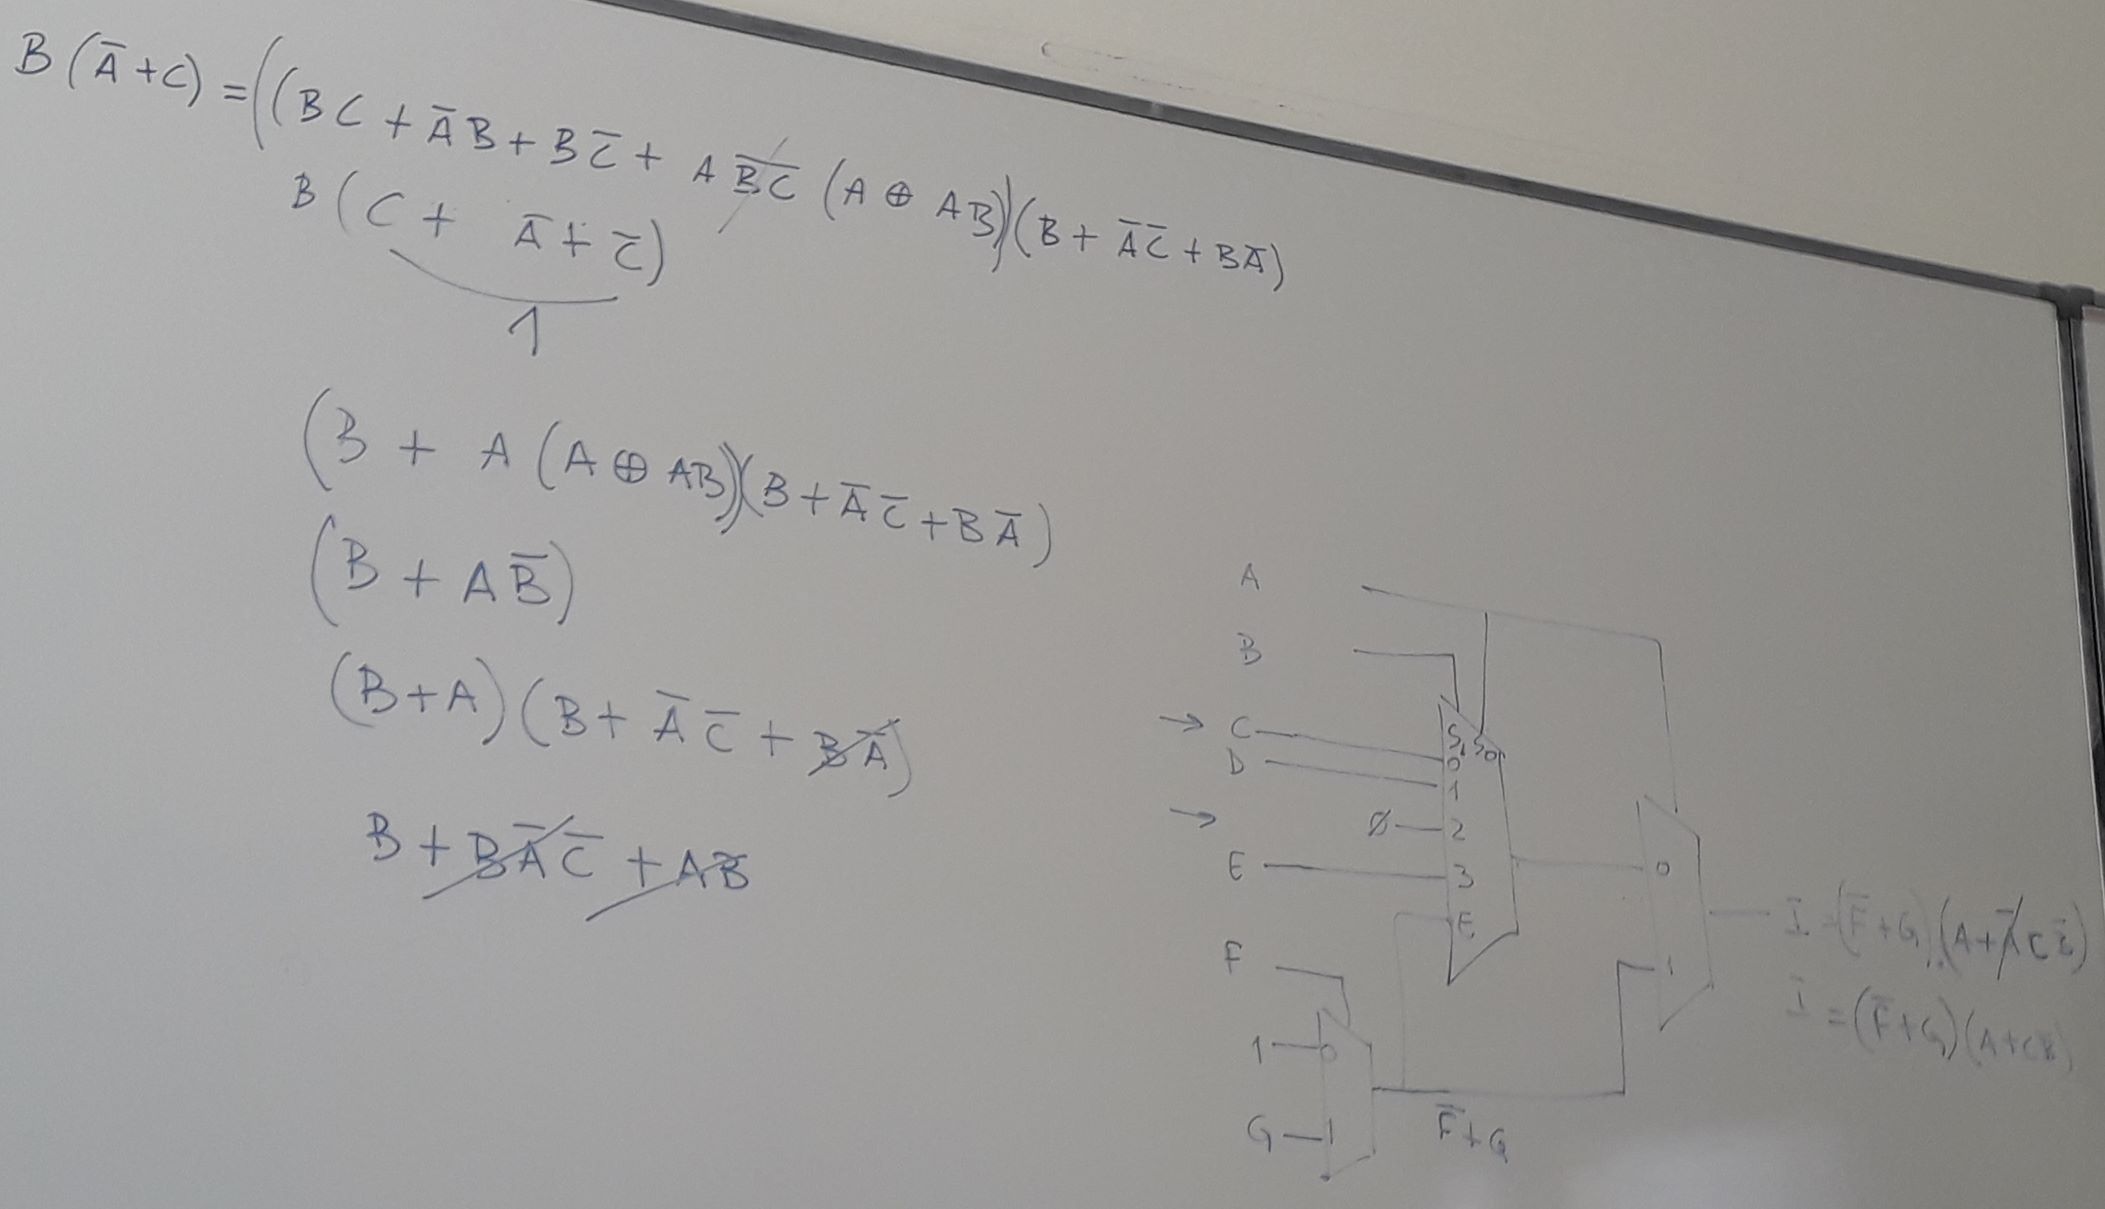 B(A̅+C)=((BC+A̅B+BC̅+A B̅C̅(A⊕AB))(B+A̅C̅+BA̅)
B(C+A̅+C̅)
1
(B+A(A⊕AB))(B+A̅C̅+BA̅)
(B+AB̅)
(B+A)(B+A̅C̅+BA̅)
B+BA̅C̅+AB
A
B
→ C
D
→
E
F
1
G
S₁ S₀
0
1
∅ 2
3
E
0
1
0
1
F̅+G
I=(F̅+G).(A+A̅C
I=(F̅+G)(A+C